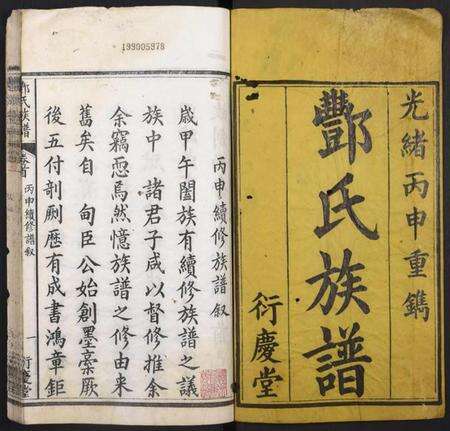 光緒丙申重鐫
酆氏族譜
衍慶堂
199005978
丙申續修族譜叙
歲甲午闔族有續修族譜之議
族中 諸君子咸以督修推余
余竊恧焉然憶族譜之修由来
舊矣自 甸臣公始創墨稾厥
後五付剞劂歷有成書鴻章鉅
酆氏族譜
卷首
丙申續修譜叙
一
衍慶堂